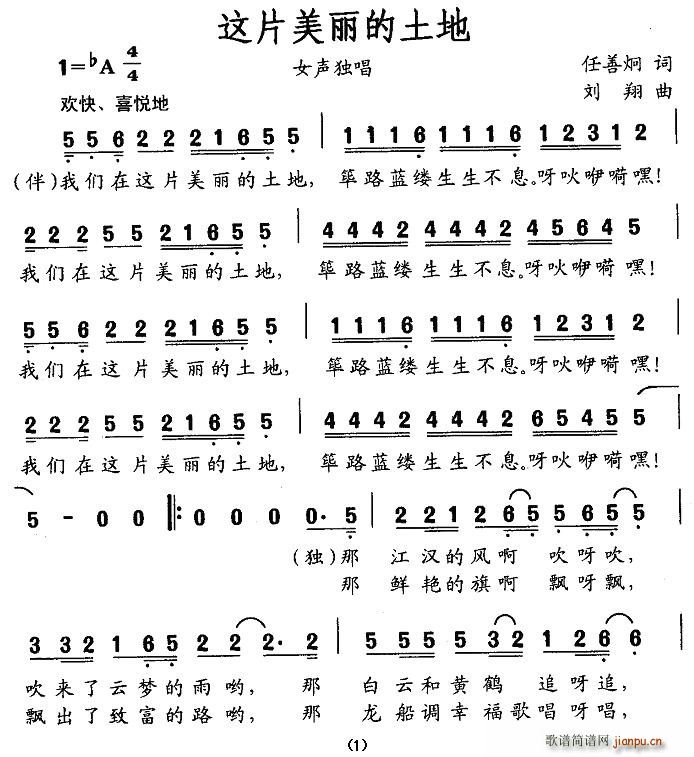 这片美丽的土地
1=♭A 4/4
女声独唱
任善炯 词
刘 翔 曲
欢快、喜悦地
5 5 6 2 2 2 1 6 5 5 | 1 1 1 6 1 1 1 6 1 2 3 1 2 |
(伴)我们在这片美丽的土地, 筚路蓝缕生生不息。呀吙咿嗬嘿!
2 2 2 5 5 2 1 6 5 5 | 4 4 4 2 4 4 4 2 4 5 6 4 5
我们在这片美丽的土地, 筚路蓝缕生生不息。呀吙咿嗬嘿!
5 5 6 2 2 2 1 6 5 5 | 1 1 1 6 1 1 1 6 1 2 3 1 2
我们在这片美丽的土地, 筚路蓝缕生生不息。呀吙咿嗬嘿!
2 2 2 5 5 2 1 6 5 5 | 4 4 4 2 4 4 4 2 6 5 4 5 5
我们在这片美丽的土地, 筚路蓝缕生生不息。呀吙咿嗬嘿!
5 - 0 0 ‖: 0 0 0 0· 5 | 2 2 1 2 6 5 5 6 5 5
(独)那 江汉的风啊 吹呀吹,
那 鲜艳的旗啊 飘呀飘,
3 3 2 1 6 5 2 2 2· 2 | 5 5 5 5 3 2 1 2 6 6
吹来了云梦的雨哟, 那 白云和黄鹤 追呀追,
飘出了致富的路哟, 那 龙船调幸福歌唱呀唱,
(1)
歌谱简谱网
jianpu.cn